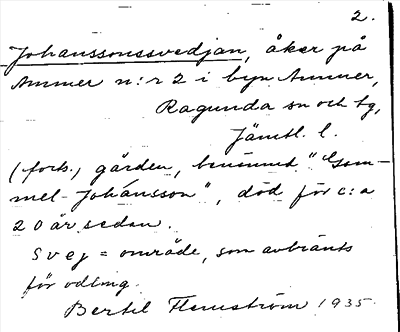 2.
Johanssonssvedjan, åker på
Ammer n:r 2 i byn Ammer,
Ragunda sn och tg,
Jämtl. l.
(forts.) gården, benämnd "Gam-
mel-Johánsson", död för c:a
20 år sedan.
Svej = område, som avbränts
för odling.
Bertil Flemström 1935.